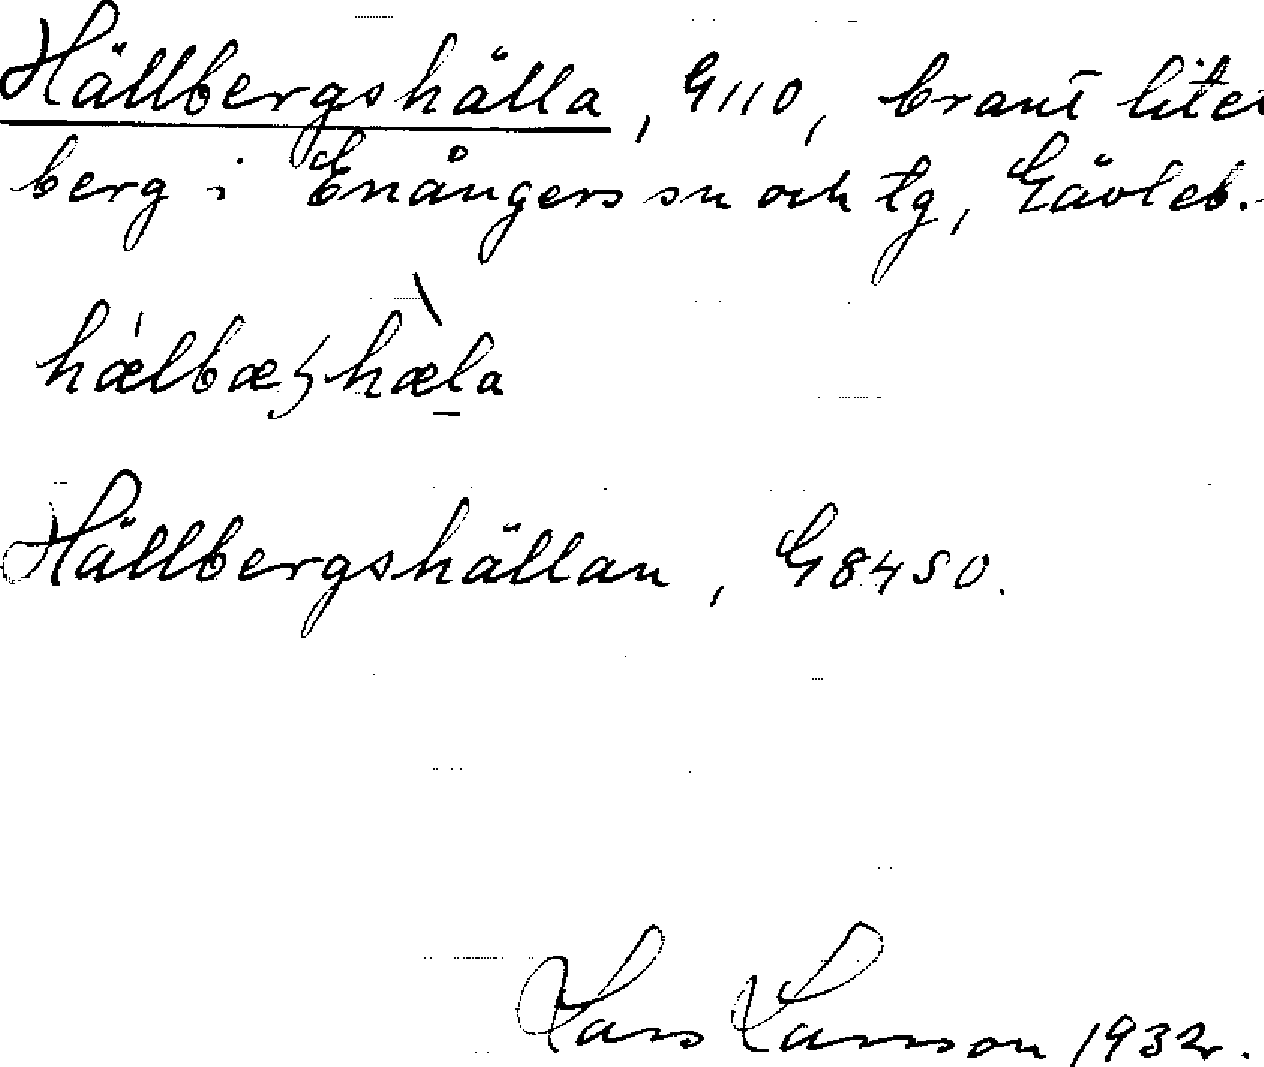 Hällbergshälla, G110, brant litet
berg i Enångers sn och tg, Gävleb.
Hällbergshällan, G8450.
Lars Larsson 1932.